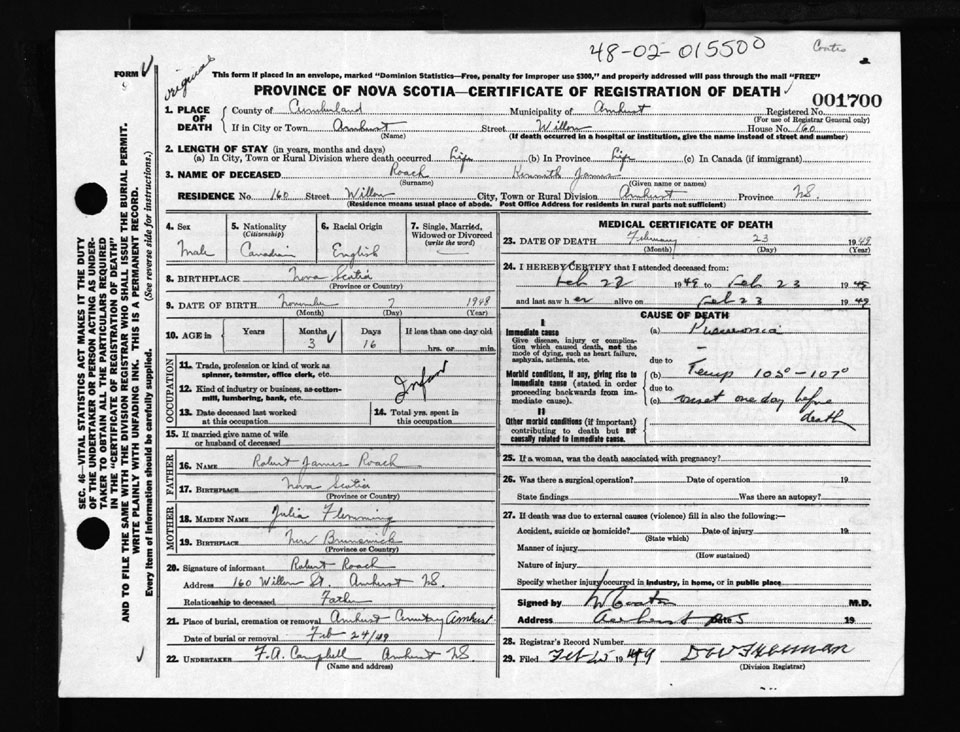 48-02-015500
Coates
original
FORM
This form if placed in an envelope, marked "Dominion Statistics—Free, penalty for improper use $300," and properly addressed will pass through the mail "FREE"
PROVINCE OF NOVA SCOTIA—CERTIFICATE OF REGISTRATION OF DEATH
001700
SEC. 46—VITAL STATISTICS ACT MAKES IT THE DUTY
OF THE UNDERTAKER OR PERSON ACTING AS UNDER-
TAKER TO OBTAIN ALL THE PARTICULARS REQUIRED
IN THE "CERTIFICATE OF REGISTRATION OF DEATH"
AND TO FILE THE SAME WITH THE DIVISION REGISTRAR WHO SHALL ISSUE THE BURIAL PERMIT.
WRITE PLAINLY WITH UNFADING INK. THIS IS A PERMANENT RECORD.
Every item of Information should be carefully supplied. (See reverse side for instructions.)
1. PLACE OF DEATH
County of Cumberland Municipality of Amherst Registered No.
(For use of Registrar General only)
If in City or Town Amherst Street Willow House No. 160
(Name) (If death occurred in a hospital or institution, give the name instead of street and number)
2. LENGTH OF STAY (in years, months and days)
(a) In City, Town or Rural Division where death occurred Life (b) In Province Life (c) In Canada (if immigrant)
3. NAME OF DECEASED Roach Kenneth James
(Surname) (Given name or names)
RESIDENCE No. 160 Street Willow City, Town or Rural Division Amherst Province NS.
(Residence means usual place of abode. Post Office Address for residents in rural parts not sufficient)
4. Sex
Male
5. Nationality
(Citizenship)
Canadian
6. Racial Origin
English
7. Single, Married,
Widowed or Divorced
(write the word)
8. BIRTHPLACE Nova Scotia
(Province or Country)
9. DATE OF BIRTH November 7 1948
(Month) (Day) (Year)
10. AGE in
Years
Months
3
Days
16
If less than one day old
hrs. or min.
OCCUPATION
11. Trade, profession or kind of work as
spinner, teamster, office clerk, etc.
12. Kind of industry or business, as cotton-
mill, lumbering, bank, etc.
Infant
13. Date deceased last worked
at this occupation
14. Total yrs. spent in
this occupation
15. If married give name of wife
or husband of deceased
FATHER
16. NAME Robert James Roach
17. BIRTHPLACE Nova Scotia
(Province or Country)
MOTHER
18. MAIDEN NAME Julia Flemming
19. BIRTHPLACE New Brunswick
(Province or Country)
20. Signature of informant Robert Roach
Address 160 Willow St. Amherst NS.
Relationship to deceased Father
21. Place of burial, cremation or removal Amherst Cemetery Amherst
Date of burial or removal Feb 24/49
22. UNDERTAKER F.A. Campbell Amherst NS.
(Name and address)
MEDICAL CERTIFICATE OF DEATH
23. DATE OF DEATH February 23 1949
(Month) (Day) (Year)
24. I HEREBY CERTIFY that I attended deceased from:
Feb 22 1949 to Feb 23 1949
and last saw h er alive on Feb 23 1949
CAUSE OF DEATH
I
Immediate cause
Give disease, injury or complica-
tion which caused death, not the
mode of dying, such as heart failure,
asphyxia, asthenia, etc.
(a) Pneumonia
due to
Morbid conditions, if any, giving rise to
immediate cause (stated in order
proceeding backwards from im-
mediate cause).
(b) Temp 105° – 107°
due to
(c) onset one day before
death
II
Other morbid conditions (if important)
contributing to death but not
causally related to immediate cause.
25. If a woman, was the death associated with pregnancy?
26. Was there a surgical operation? Date of operation 19
State findings Was there an autopsy?
27. If death was due to external causes (violence) fill in also the following:—
Accident, suicide or homicide? Date of injury 19
(State which)
Manner of injury
(How sustained)
Nature of injury
Specify whether injury occurred in industry, in home, or in public place
Signed by Coates M.D.
Address Amherst NS Date 19
28. Registrar's Record Number
29. Filed Feb 25 1949
(Division Registrar)